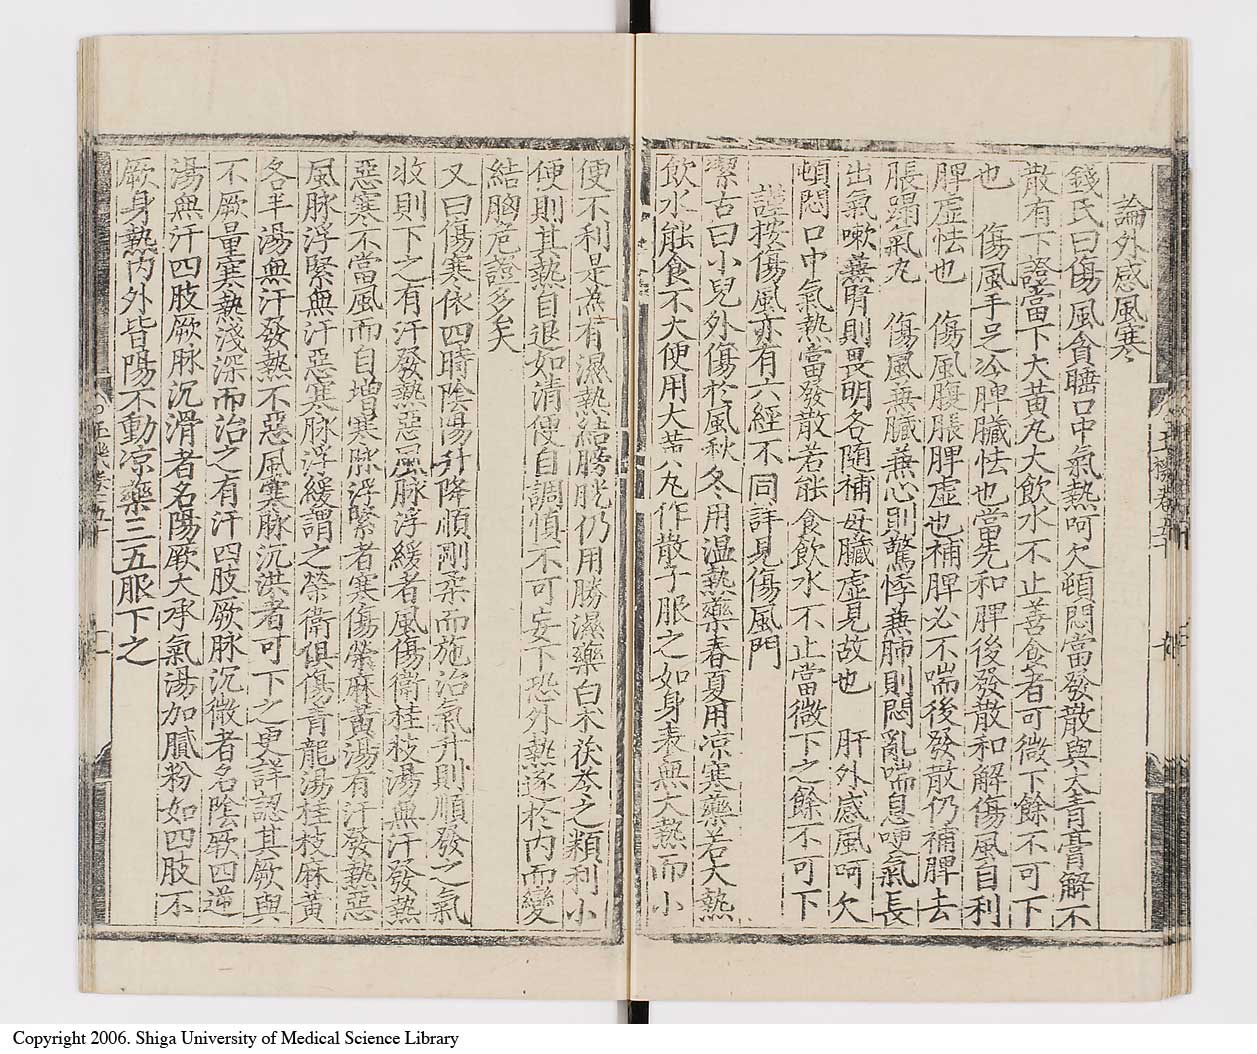 論外感風寒
錢氏曰傷風貪睡口中氣熱呵欠頓悶當發散與大青膏解不
散有下證當下大黃丸大飲水不止善食者可微下餘不可下
也　傷風手足冷脾臟怯也當先和脾後發散和解傷風自利
脾虛怯也　傷風腹脹脾虛也補脾必不喘後發散仍補脾去
脹蹋氣丸　傷風兼臟兼心則驚悸兼肺則悶亂喘息哽氣長
出氣嗽兼腎則畏明各隨補母臟虛見故也　肝外感風呵欠
頓悶口中氣熱當發散若能食飲水不止當微下之餘不可下
謹按傷風亦有六經不同詳見傷風門
潔古曰小兒外傷於風秋冬用溫熱藥春夏用凉寒藥若大熱
飲水能食不大便用大黃丸作散子服之如身表無大熱而小
便不利是為有濕熱結膀胱仍用勝濕藥白朮茯苓之類利小
便則其熱自退如清便自調慎不可妄下恐外熱逐於內而變
結胸危證多矣
又曰傷寒依四時陰陽升降順剛柔而施治氣升則順發之氣
收則下之有汗發熱惡風脉浮緩者風傷衛桂枝湯無汗發熱
惡寒不當風而自增寒脉浮緊者寒傷榮麻黃湯有汗發熱惡
風脉浮緊無汗惡寒脉浮緩謂之榮衛俱傷青龍湯桂枝麻黃
各半湯無汗發熱不惡風寒脉沉洪者可下之更詳認其厥與
不厥量寒熱淺深而治之有汗四肢厥脉沉微者名陰厥四逆
湯無汗四肢厥脉沉滑者名陽厥大承氣湯加膩粉如四肢不
厥身熱內外皆陽不動凉藥三五服下之
Copyright 2006. Shiga University of Medical Science Library